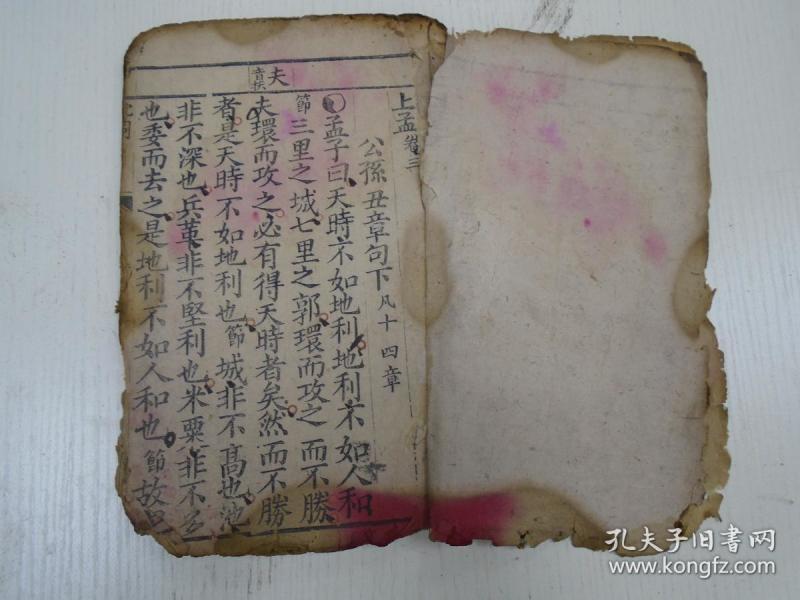 夫 音扶
上孟 卷三
公孫丑章句下 凡十四章
孟子曰天時不如地利地利不如人和
節三里之城七里之郭環而攻之而不勝
夫環而攻之必有得天時者矣然而不勝
者是天時不如地利也節城非不高也池
非不深也兵革非不堅利也米粟非不多
也委而去之是地利不如人和也節故曰
孔夫子旧书网
www.kongfz.com